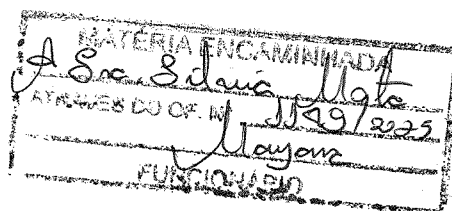 MATÉRIA ENCAMINHADA
A Sra. Silvia
ATRAVÉS DO OF. Nº 1149/2025
Mayara
FUNCIONÁRIO